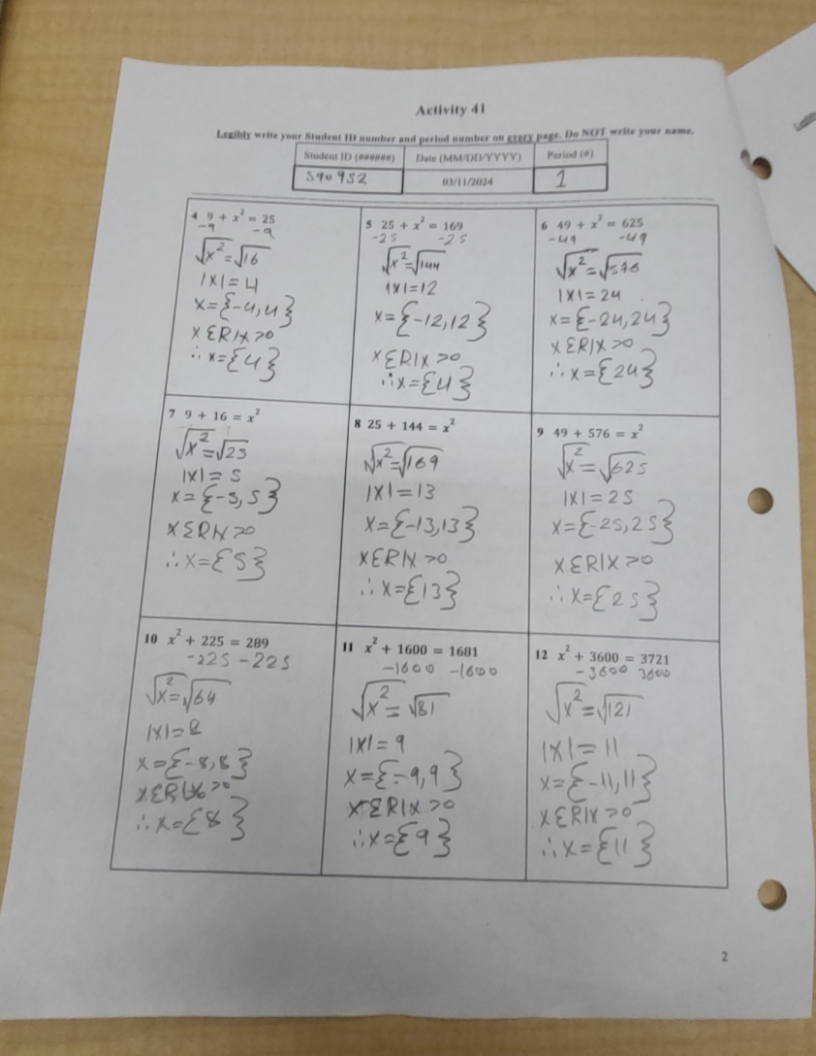 Activity 41
Legibly write your Student ID number and period number on every page. Do NOT write your name.
Student ID (######) Date (MM/DD/YYYY) Period (#)
590952 03/11/2024 1
4 9 + x² = 25
-9 -9
√x² = √16
|x| = 4
x = {-4, 4}
x ∈ R | x > 0
∴ x = {4}
5 25 + x² = 169
-25 -25
√x² = √144
|x| = 12
x = {-12, 12}
x ∈ R | x > 0
∴ x = {4}
6 49 + x² = 625
-49 -49
√x² = √576
|x| = 24
x = {-24, 24}
x ∈ R | x > 0
∴ x = {24}
7 9 + 16 = x²
√x² = √25
|x| = 5
x = {-5, 5}
x ∈ R | x > 0
∴ x = {5}
8 25 + 144 = x²
√x² = √169
|x| = 13
x = {-13, 13}
x ∈ R | x > 0
∴ x = {13}
9 49 + 576 = x²
√x² = √625
|x| = 25
x = {-25, 25}
x ∈ R | x > 0
∴ x = {25}
10 x² + 225 = 289
-225 -225
√x² = √64
|x| = 8
x = {-8, 8}
x ∈ R | x > 0
∴ x = {8}
11 x² + 1600 = 1681
-1600 -1600
√x² = √81
|x| = 9
x = {-9, 9}
x ∈ R | x > 0
∴ x = {9}
12 x² + 3600 = 3721
-3600 3600
√x² = √121
|x| = 11
x = {-11, 11}
x ∈ R | x > 0
∴ x = {11}
2